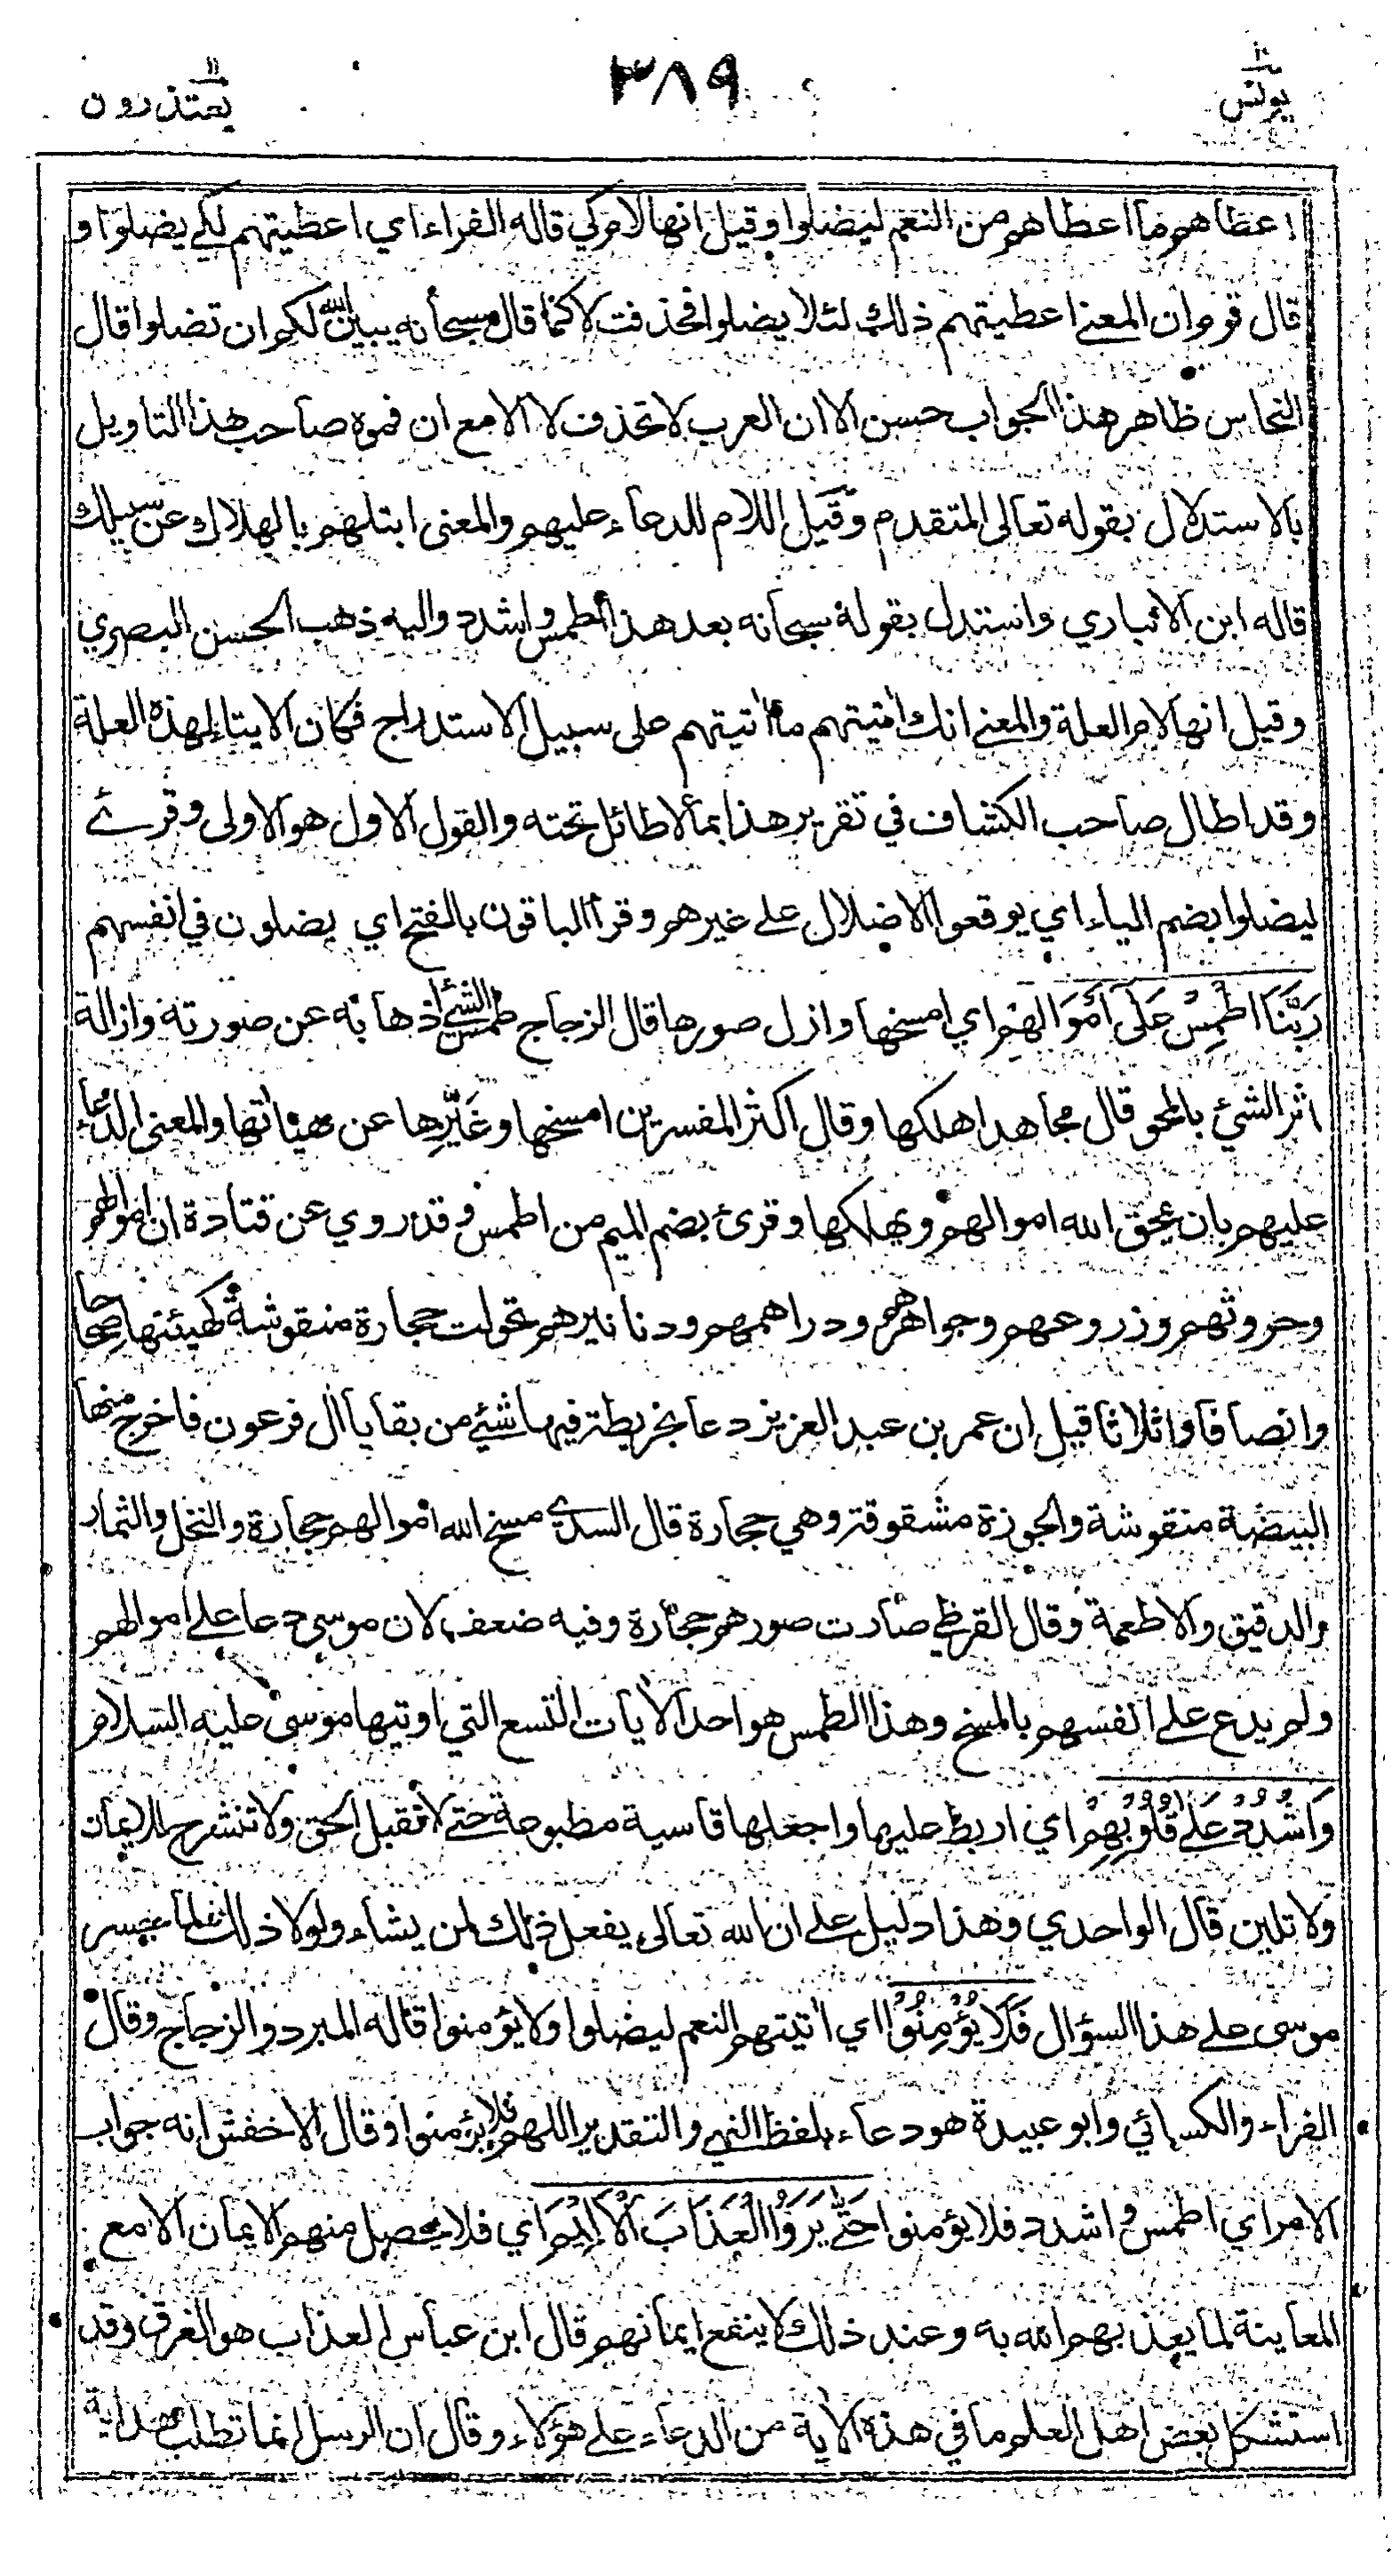 ١٠
يونس
٣٨٩
١١
يعتذرون
اعطاهم ما اعطاهم من النعم ليضلوا وقيل انها لام كي قاله الفراء اي اعطيتهم لكي يضلوا و
قال قوم ان المعنى اعطيتهم ذلك لئلا يضلوا فحذفت لا كما قال سبحانه يبين الله لكم ان تضلوا قال
النحاس ظاهر هذا الجواب حسن الا ان العرب لا تحذف لا الا مع ان فموه صاحب هذا التاويل
بالاستدلال بقوله تعالى المتقدم وقيل اللام للدعاء عليهم والمعنى ابتلهم بالهلاك عن سبيلك
قاله ابن الانباري واستدل بقوله سبحانه بعد هذا اطمس واشدد واليه ذهب الحسن البصري
وقيل انها لام العلة والمعنى انك اتيتهم ما اتيتهم على سبيل الاستدراج فكان الايتاء لهذه العلة
وقد اطال صاحب الكشاف في تقرير هذا بما لا طائل تحته والقول الاول هو الاولى وقرئ
ليضلوا بضم الياء اي يوقعوا الاضلال على غيرهم وقرأ الباقون بالفتح اي يضلون في انفسهم
رَبَّنَا اطْمِسْ عَلَى أَمْوَالِهِمْ اي امسخها وازل صورها قال الزجاج طمس الشئ اذهابه عن صورته وازالة
اثر الشئ بالمحو قال مجاهد اهلكها وقال اكثر المفسرين امسخها وغَيِّرها عن هيأتها والمعنى الدعاء
عليهم بان يمحق الله اموالهم ويهلكها وقرئ بضم الميم من اطمس وقد روي عن قتادة ان اموالهم
وحروثهم وزروعهم وجواهرهم ودراهمهم ودنانيرهم تحولت حجارة منقوشة كهيئتها صحاحا
وانصافا واثلاثا قيل ان عمر بن عبد العزيز دعا بخريطة فيها شئ من بقايا ال فرعون فاخرج منها
البيضة منقوشة والجوزة مشقوقة وهي حجارة قال السدي مسخ الله اموالهم حجارة والنخل والثمار
والدقيق والاطعمة وقال القرظي صارت صورهم حجارة وفيه ضعف لان موسى دعا على اموالهم
ولم يدع على انفسهم بالمسخ وهذا الطمس هو احد الايات التسع التي اوتيها موسى عليه السلام
وَاشْدُدْ عَلَى قُلُوْبِهِمْ اي اربط عليها واجعلها قاسية مطبوعة حتى لا تقبل الحق ولا تنشرح للايمان
ولا تلين قال الواحدي وهذا دليل على ان الله تعالى يفعل ذلك لمن يشاء ولولا ذلك لما جسر
موسى على هذا السؤال فَلَا يُؤْمِنُوْا اي اتيتهم النعم ليضلوا ولا يؤمنوا قاله المبرد والزجاج وقال
الفراء والكسائي وابو عبيدة هو دعاء بلفظ النهي والتقدير اللهم فلا يؤمنوا وقال الاخفش انه جواب
الامر اي اطمس واشدد فلا يؤمنوا حَتَّى يَرَوُا الْعَذَابَ الْأَلِيْمَ اي فلا يحصل منهم الايمان الا مع
المعاينة لما يعذبهم الله به وعند ذلك لا ينفع ايمانهم قال ابن عباس العذاب هو الغرق وقد
استشكل بعض اهل العلم ما في هذه الاية من الدعاء على هؤلاء وقال ان الرسل انما تطلب هداية